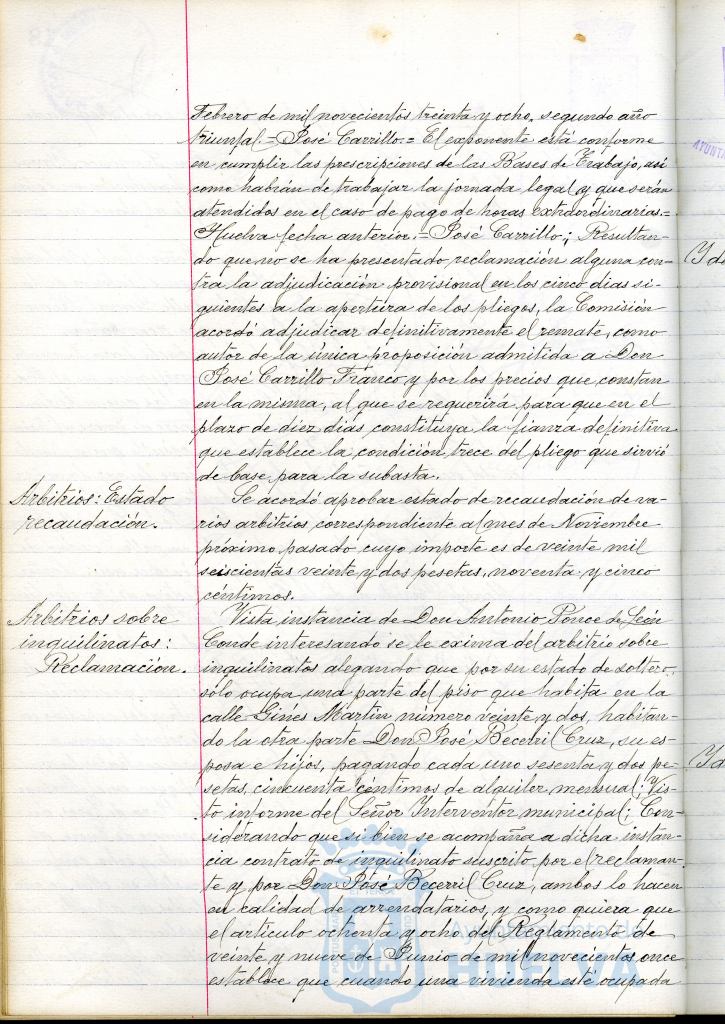 Febrero de mil novecientos treinta y ocho, segundo año
triunfal.=José Carrillo.= El exponente está conforme
en cumplir las prescripciones de las Bases de Trabajo, asi
como habrán de trabajar la jornada legal y que serán
atendidos en el caso de pago de horas extraordinarias.=
Huelva fecha anterior.=José Carrillo.; Resultan-
do que no se ha presentado reclamación alguna con-
tra la adjudicación provisional en los cinco dias si-
guientes a la apertura de los pliegos, la Comisión
acordó adjudicar definitivamente el remate, como
autor de la única proposición admitida a Don
José Carrillo Franco y por los precios que constan
en la misma, al que se requerirá para que en el
plazo de diez dias constituya la fianza definitiva
que establece la condición trece del pliego que sirvió
de base para la subasta.
Arbitrios: Estado
recaudación.
Se acordó aprobar estado de recaudación de va-
rios arbitrios correspondiente al mes de Noviembre
próximo pasado cuyo importe es de veinte mil
seiscientas veinte y dos pesetas, noventa y cinco
céntimos.
Arbitrios sobre
inquilinatos:
Reclamación.
Vista instancia de Don Antonio Ponce de León
Conde interesando se le exima del arbitrio sobre
inquilinatos alegando que por su estado de soltero,
sólo ocupa una parte del piso que habita en la
calle Ginés Martín número veinte y dos, habitan-
do la otra parte Don José Becerril Cruz, su es-
posa e hijos, pagando cada uno sesenta y dos pe-
setas, cincuenta céntimos de alquiler mensual; Vis-
to informe del Señor Interventor municipal; Con-
siderando que si bien se acompaña a dicha instan-
cia contrato de inquilinato suscrito por el reclaman-
te y por Don José Becerril Cruz, ambos lo hacen
en calidad de arrendatarios, y como quiera que
el artículo ochenta y ocho del Reglamento de
veinte y nueve de Junio de mil novecientos once
establece que cuando una vivienda esté ocupada
Ayuntamiento de
HUELVA